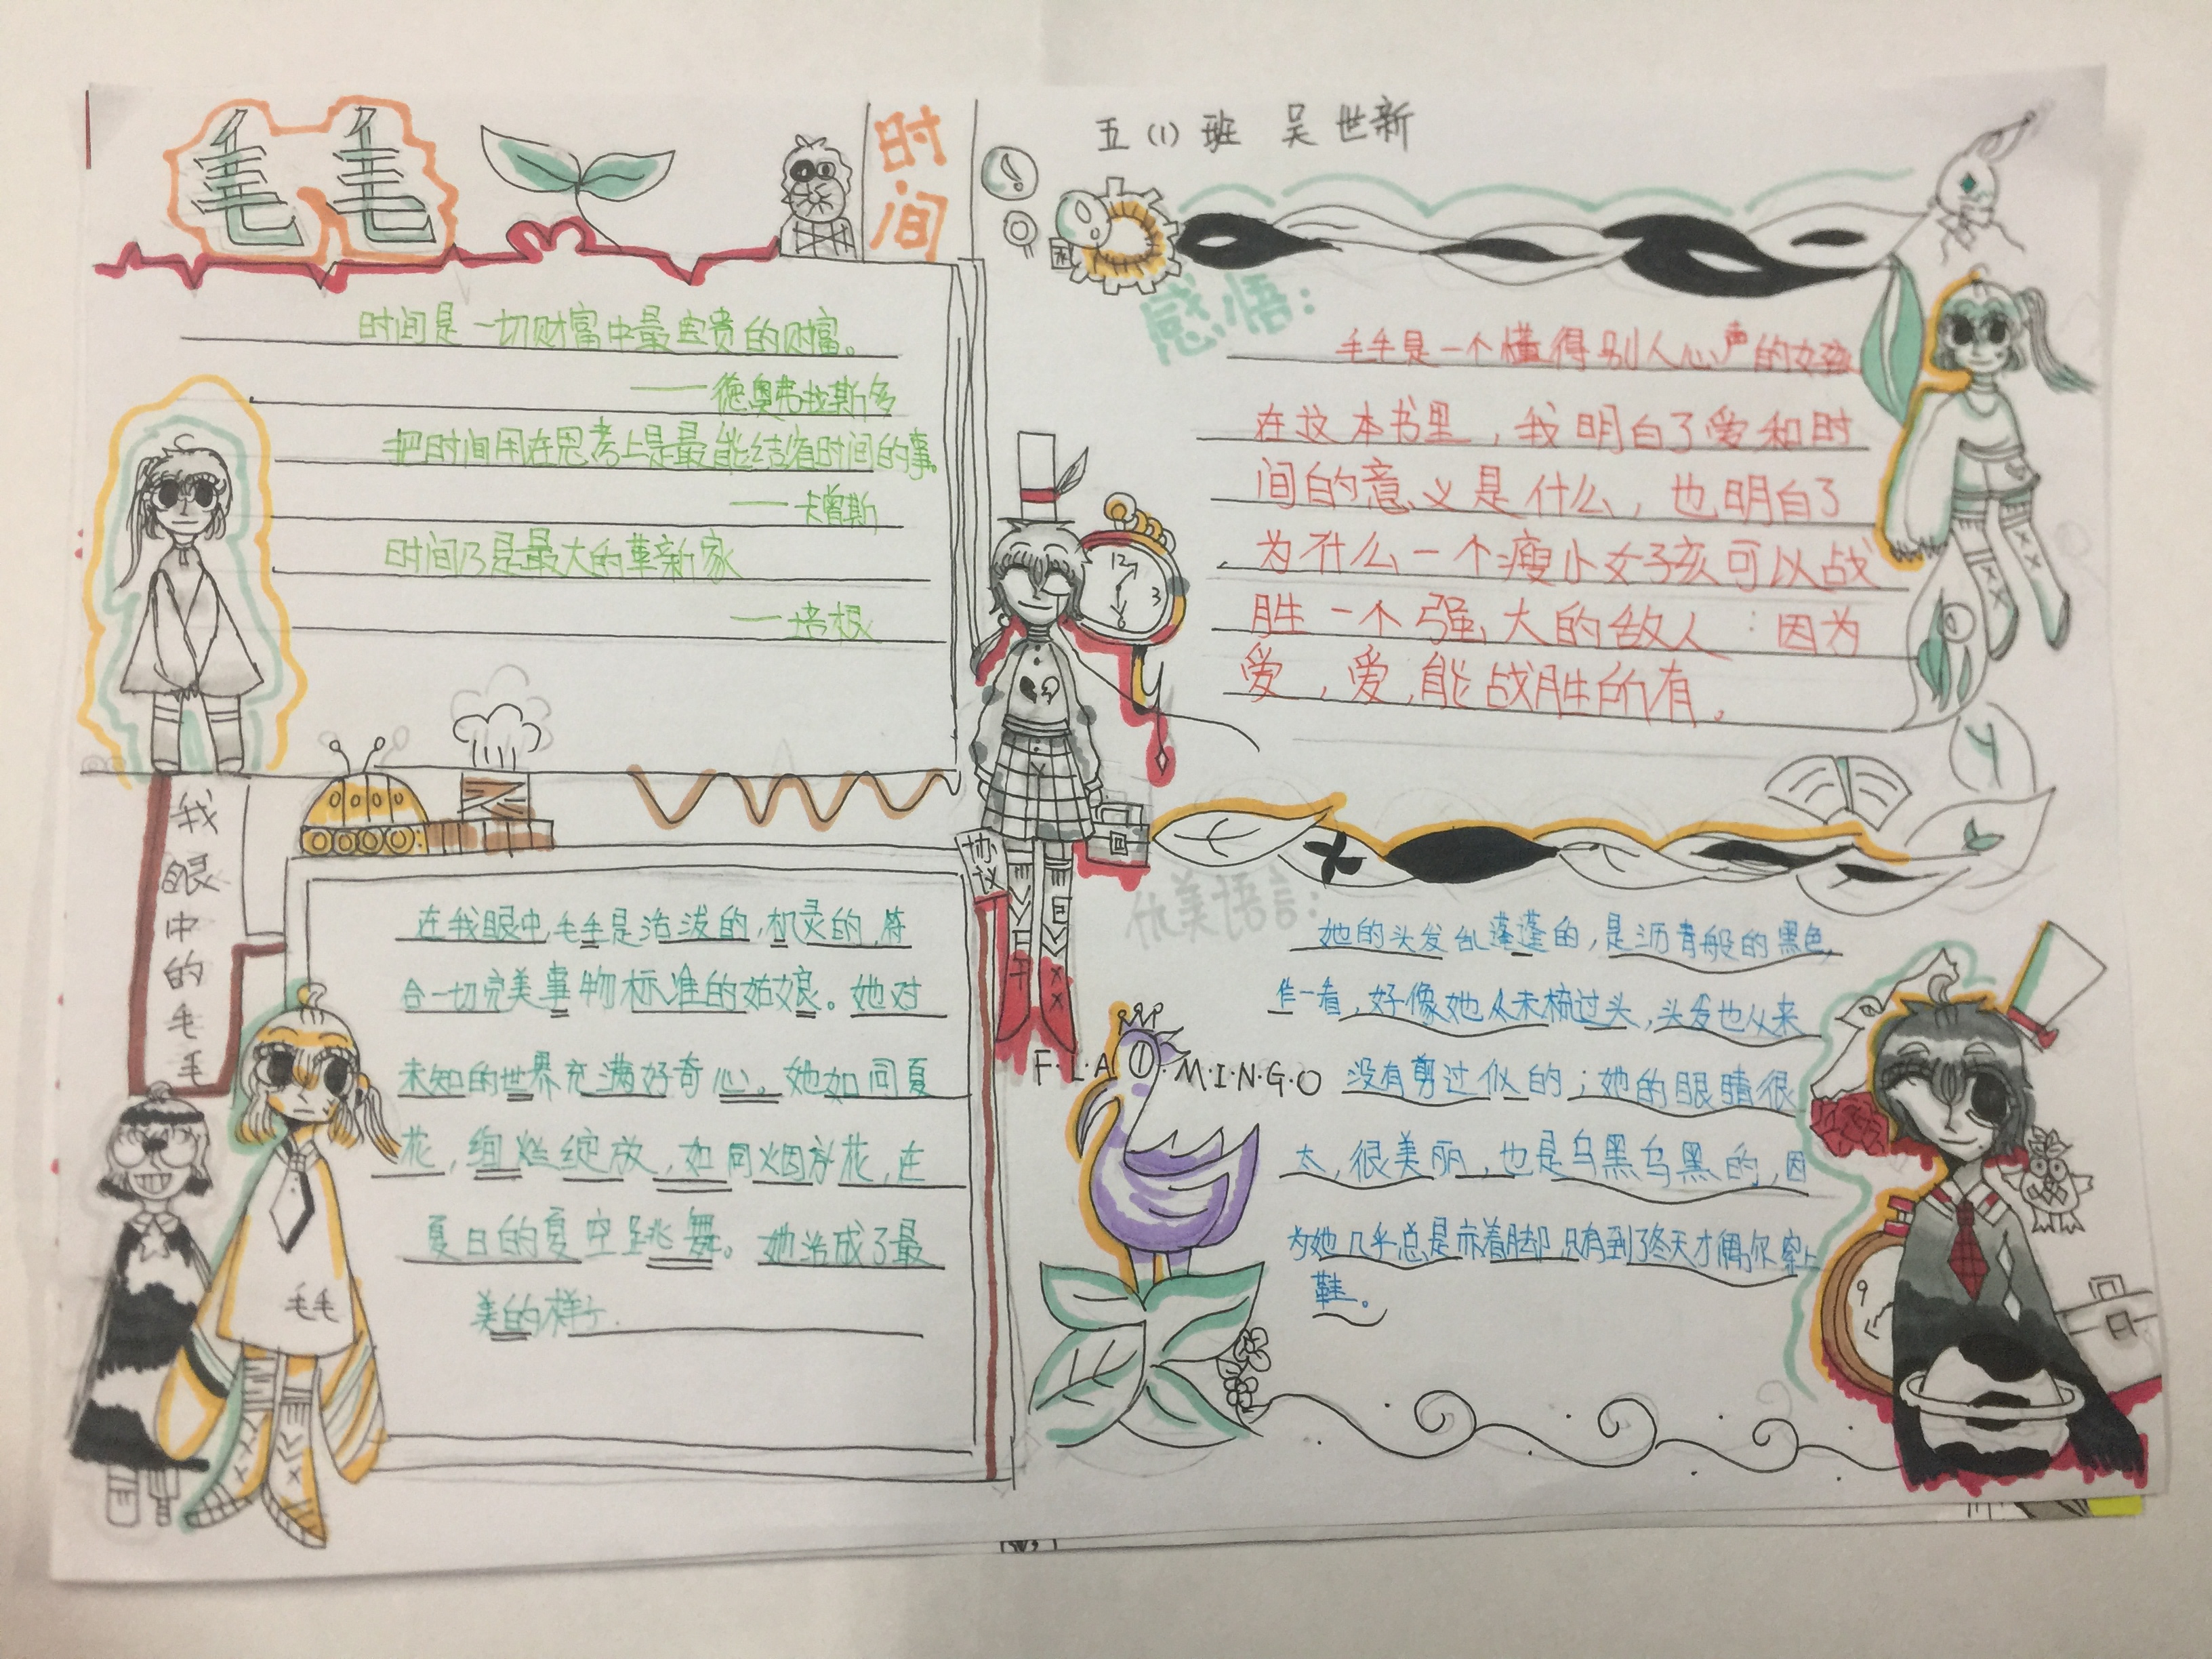 毛毛
时间
时间是一切财富中最宝贵的财富。
——德奥弗拉斯多
把时间用在思考上是最能结省时间的事。
——卡曾斯
时间乃是最大的革新家
——培根
我眼中的毛毛
在我眼中,毛毛是活泼的,机灵的,符
合一切完美事物标准的姑娘。她对
未知的世界充满好奇心。她如同夏
花,绚烂绽放,如同烟花,在
夏日的夏空跳舞。她活成了最
美的样子.
毛毛
五(1)班 吴世新
感悟:
毛毛是一个懂得别人心声的女孩
在这本书里,我明白了爱和时
间的意义是什么,也明白了
为什么一个瘦小女子孩可以战
胜一个强大的敌人:因为
爱,爱,能战胜所有。
12
3
6
协议
优美语言:
她的头发乱蓬蓬的,是沥青般的黑色,
乍一看,好像她从未梳过头,头发也从来
没有剪过似的;她的眼睛很
大,很美丽,也是乌黑乌黑的,因
为她几乎总是赤着脚,只有到了冬天才偶尔穿上
鞋。
F·L·A M·I·N·G·O
9